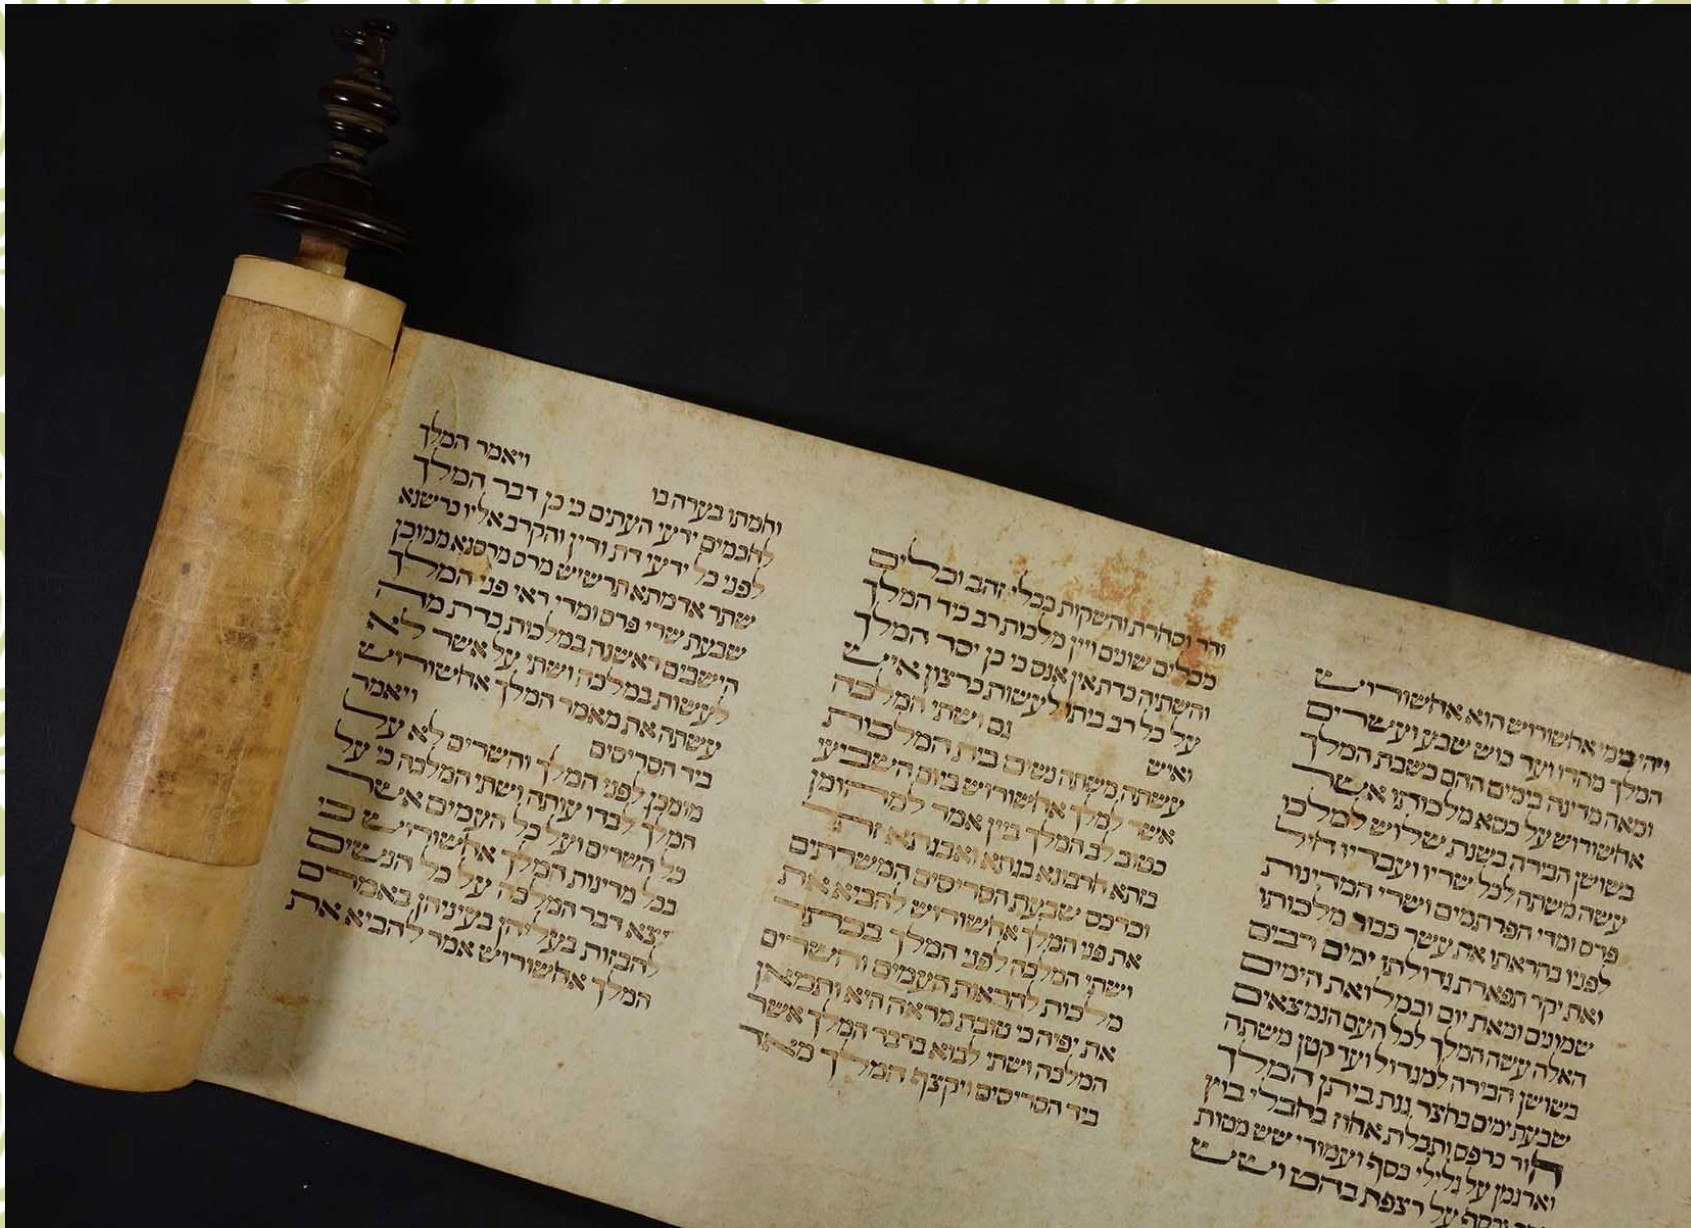 ויהי בימי אחשורוש הוא אחשורוש
המלך מהדו ועד כוש שבע ועשרים
ומאה מדינה בימים ההם כשבת המלך
אחשורוש על כסא מלכותו אשר
בשושן הבירה בשנת שלוש למלכו
עשה משתה לכל שריו ועבדיו חיל
פרס ומדי הפרתמים ושרי המדינות
לפניו בהראתו את עשר כבוד מלכותו
ואת יקר תפארת גדולתו ימים רבים
שמונים ומאת יום ובמלואת הימים
האלה עשה המלך לכל העם הנמצאים
בשושן הבירה למגדול ועד קטן משתה
שבעת ימים בחצר גנת ביתן המלך
חור כרפס ותכלת אחוז בחבלי בוץ
וארגמן על גלילי כסף ועמודי שש מטות
וכסף על רצפת בהט ושש
ודר וסחרת והשקות בכלי זהב וכלים
מכלים שונים ויין מלכות רב כיד המלך
והשתיה כדת אין אנס כי כן יסד המלך
על כל רב ביתו לעשות כרצון איש
ואיש גם ושתי המלכה
עשתה משתה נשים בית המלכות
אשר למלך אחשורוש ביום השביעי
כטוב לב המלך ביין אמר למהומן
בזתא חרבונא בגתא ואבגתא זתר
וכרכס שבעת הסריסים המשרתים
את פני המלך אחשורוש להביא את
ושתי המלכה לפני המלך בכתר
מלכות להראות העמים והשרים
את יפיה כי טובת מראה היא ותמאן
המלכה ושתי לבוא בדבר המלך אשר
ביד הסריסים ויקצף המלך מאד
וחמתו בערה בו ויאמר המלך
לחכמים ידעי העתים כי כן דבר המלך
לפני כל ידעי דת ודין והקרב אליו כרשנא
שתר אדמתא תרשיש מרס מרסנא ממוכן
שבעת שרי פרס ומדי ראי פני המלך
הישבים ראשנה במלכות כדת מה
לעשות במלכה ושתי על אשר לא
עשתה את מאמר המלך אחשורוש
ביד הסריסים ויאמר
מומכן לפני המלך והשרים לא על
המלך לבדו עותה ושתי המלכה כי על
כל השרים ועל כל העמים אשר
בכל מדינות המלך אחשורוש כי
יצא דבר המלכה על כל הנשים
להבזות בעליהן בעיניהן באמרם
המלך אחשורוש אמר להביא את